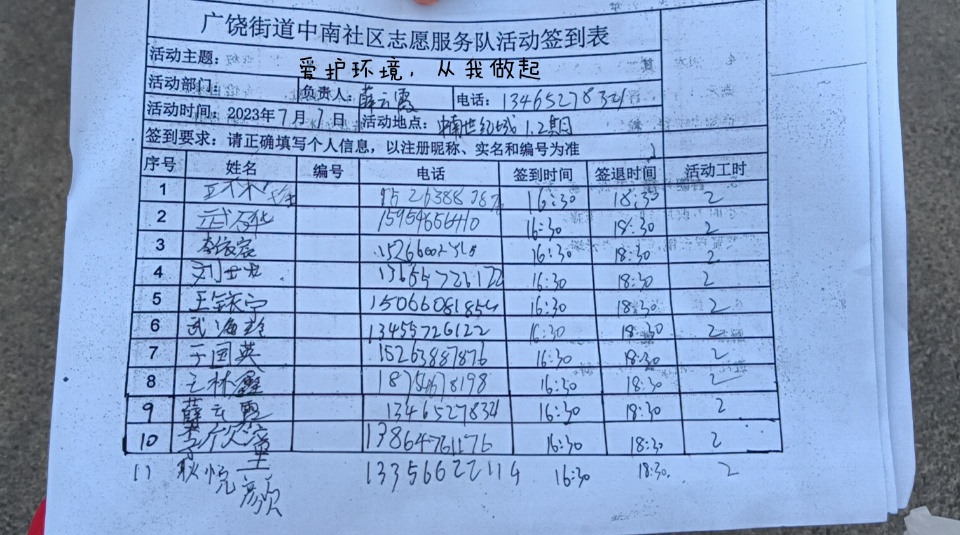 广饶街道中南社区志愿服务队活动签到表
活动主题： 爱护环境，从我做起
活动部门： 负责人：薛云霞 电话：13465278321
活动时间：2023年7月1日 活动地点：中南世纪城1.2期
签到要求：请正确填写个人信息，以注册昵称、实名和编号为准
序号 姓名 编号 电话 签到时间 签退时间 活动工时
1 16:30 18:30 2
2 15954656410 16:30 18:30 2
3 16:30 18:30 2
4 13655726122 16:30 18:30 2
5 16:30 18:30 2
6 武海玲 13455726122 16:30 18:30 2
7 于国英 15263887876 16:30 18:30 2
8 王林鑫 16:30 18:30 2
9 薛云霞 13465278321 16:30 18:30 2
10 13864761176 16:30 18:30 2
11 13356622114 16:30 18:30. 2